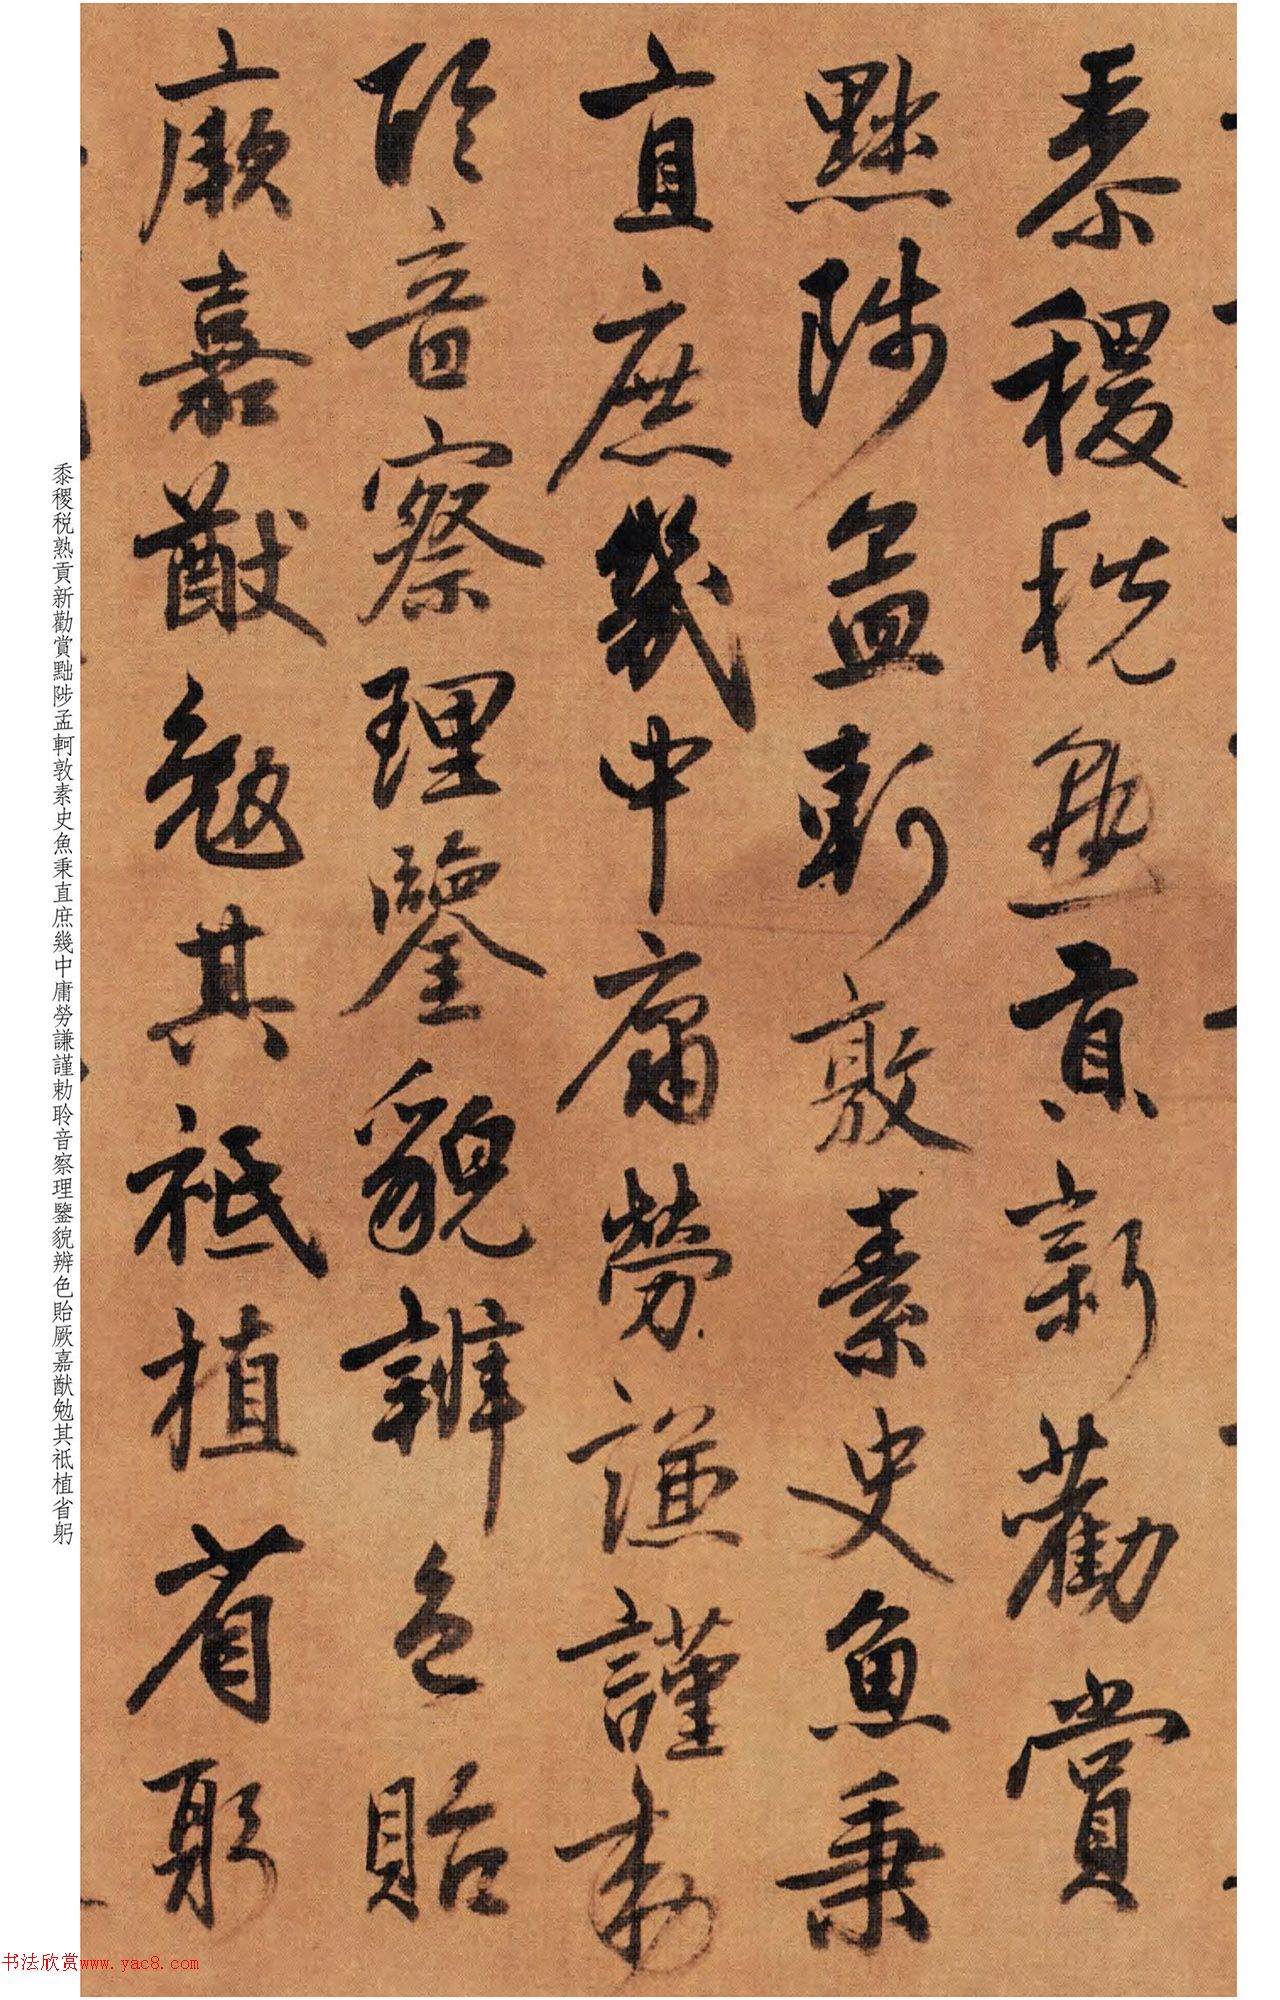 黍稷税熟貢新勸賞
黜陟孟軻敦素史魚秉
直庶幾中庸勞謙謹勅
聆音察理鑒貌辨色貽
厥嘉猷勉其祗植省躬
黍稷税熟貢新勸賞黜陟孟軻敦素史魚秉直庶幾中庸勞謙謹勅聆音察理鑒貌辨色貽厥嘉猷勉其祗植省躬
书法欣赏www.yac8.com